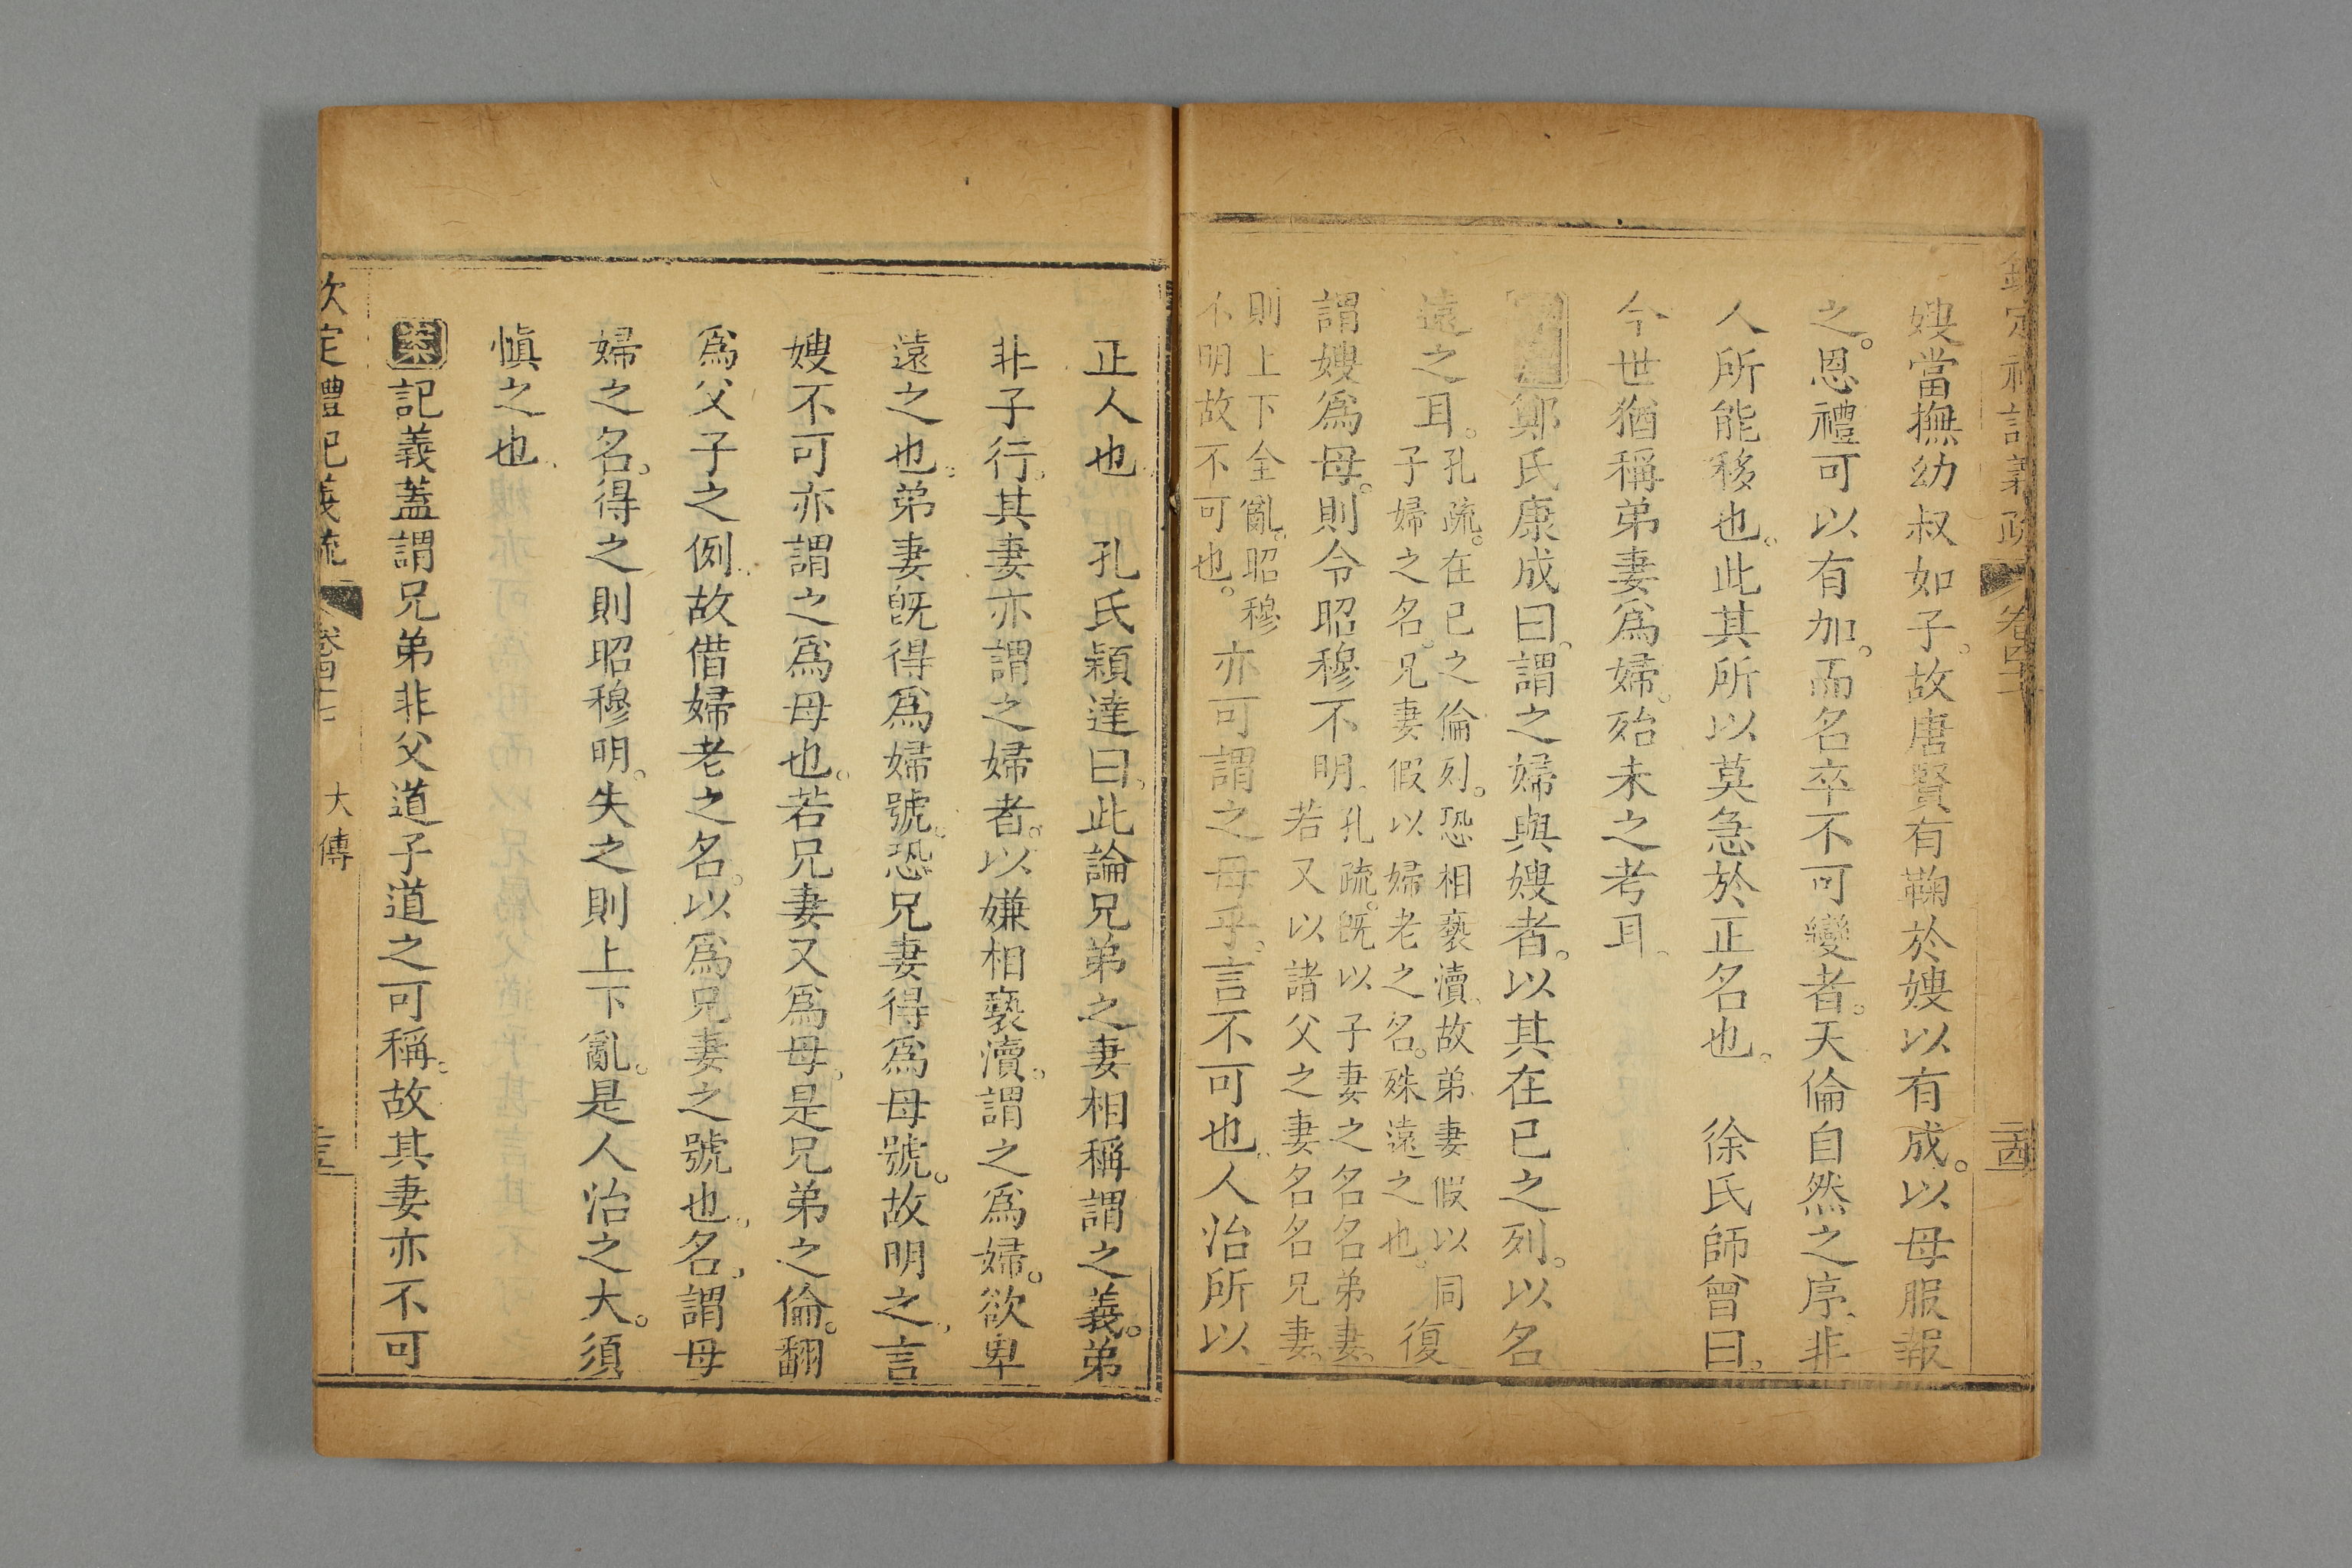 欽定禮記義疏 卷四十七 二十四
嫂當撫幼叔如子。故唐賢有鞠於嫂以有成。以母服報
之。恩禮可以有加。而名卒不可變者。天倫自然之序。非
人所能移也。此其所以莫急於正名也。 徐氏師曾曰。
今世猶稱弟妻爲婦。殆未之考耳。
鄭氏康成曰。謂之婦與嫂者。以其在已之列。以名
遠之耳。孔疏。在已之倫列。恐相褻瀆。故弟妻假以同
子婦之名。兄妻假以婦老之名。殊遠之也。復
謂嫂爲母。則令昭穆不明。孔疏。旣以子妻之名名弟妻。
若又以諸父之妻名名兄妻。
則上下全亂。昭穆
不明故不可也。亦可謂之母乎。言不可也。人治所以
正人也 孔氏穎達曰。此論兄弟之妻相稱謂之義。弟
非子行。其妻亦謂之婦者。以嫌相褻瀆。謂之爲婦。欲卑
遠之也。弟妻旣得爲婦號。恐兄妻得爲母號。故明之。言
嫂不可亦謂之爲母也。若兄妻又爲母。是兄弟之倫。翻
爲父子之例。故借婦老之名。以爲兄妻之號也。名。謂母
婦之名。得之則昭穆明。失之則上下亂。是人治之大。須
愼之也。
案記義蓋謂兄弟非父道子道之可稱。故其妻亦不可
欽定禮記義疏 卷四十七 大傳